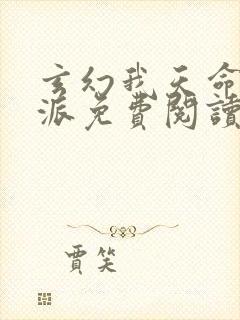 玄幻我天命
派免費閱讀
賈笑